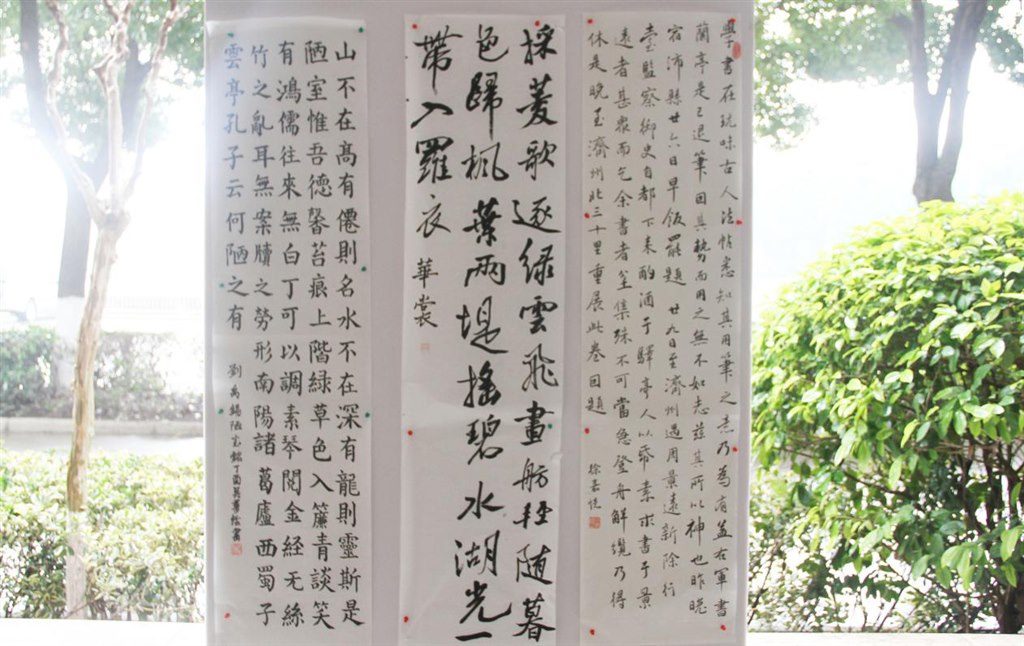 學書在玩味古人法帖悉知其用筆之意乃為有益右軍書
蘭亭是已退筆因其勢而用之無不如志茲其所以神也昨晚
宿沛縣廿六日早飯罷題廿九日至濟州遇周景遠新除行
臺監察御史自都下來酌酒于驛亭人以帋素求書于景
遠者甚衆而乞余書者坌集殊不可當急登舟解纜乃得
休是晚至濟州北三十里重展此卷因題
採菱歌逐緑雲飛畫舫輕隨暮
色歸楓葉兩堤搖碧水湖光一
帶入羅衣
華裳
山不在高有僊則名水不在深有龍則靈斯是
陋室惟吾德馨苔痕上階緑草色入簾青談笑
有鴻儒往來無白丁可以調素琴閲金経无絲
竹之亂耳無案牘之勞形南陽諸葛廬西蜀子
雲亭孔子云何陋之有
劉禹錫陋室銘丁酉